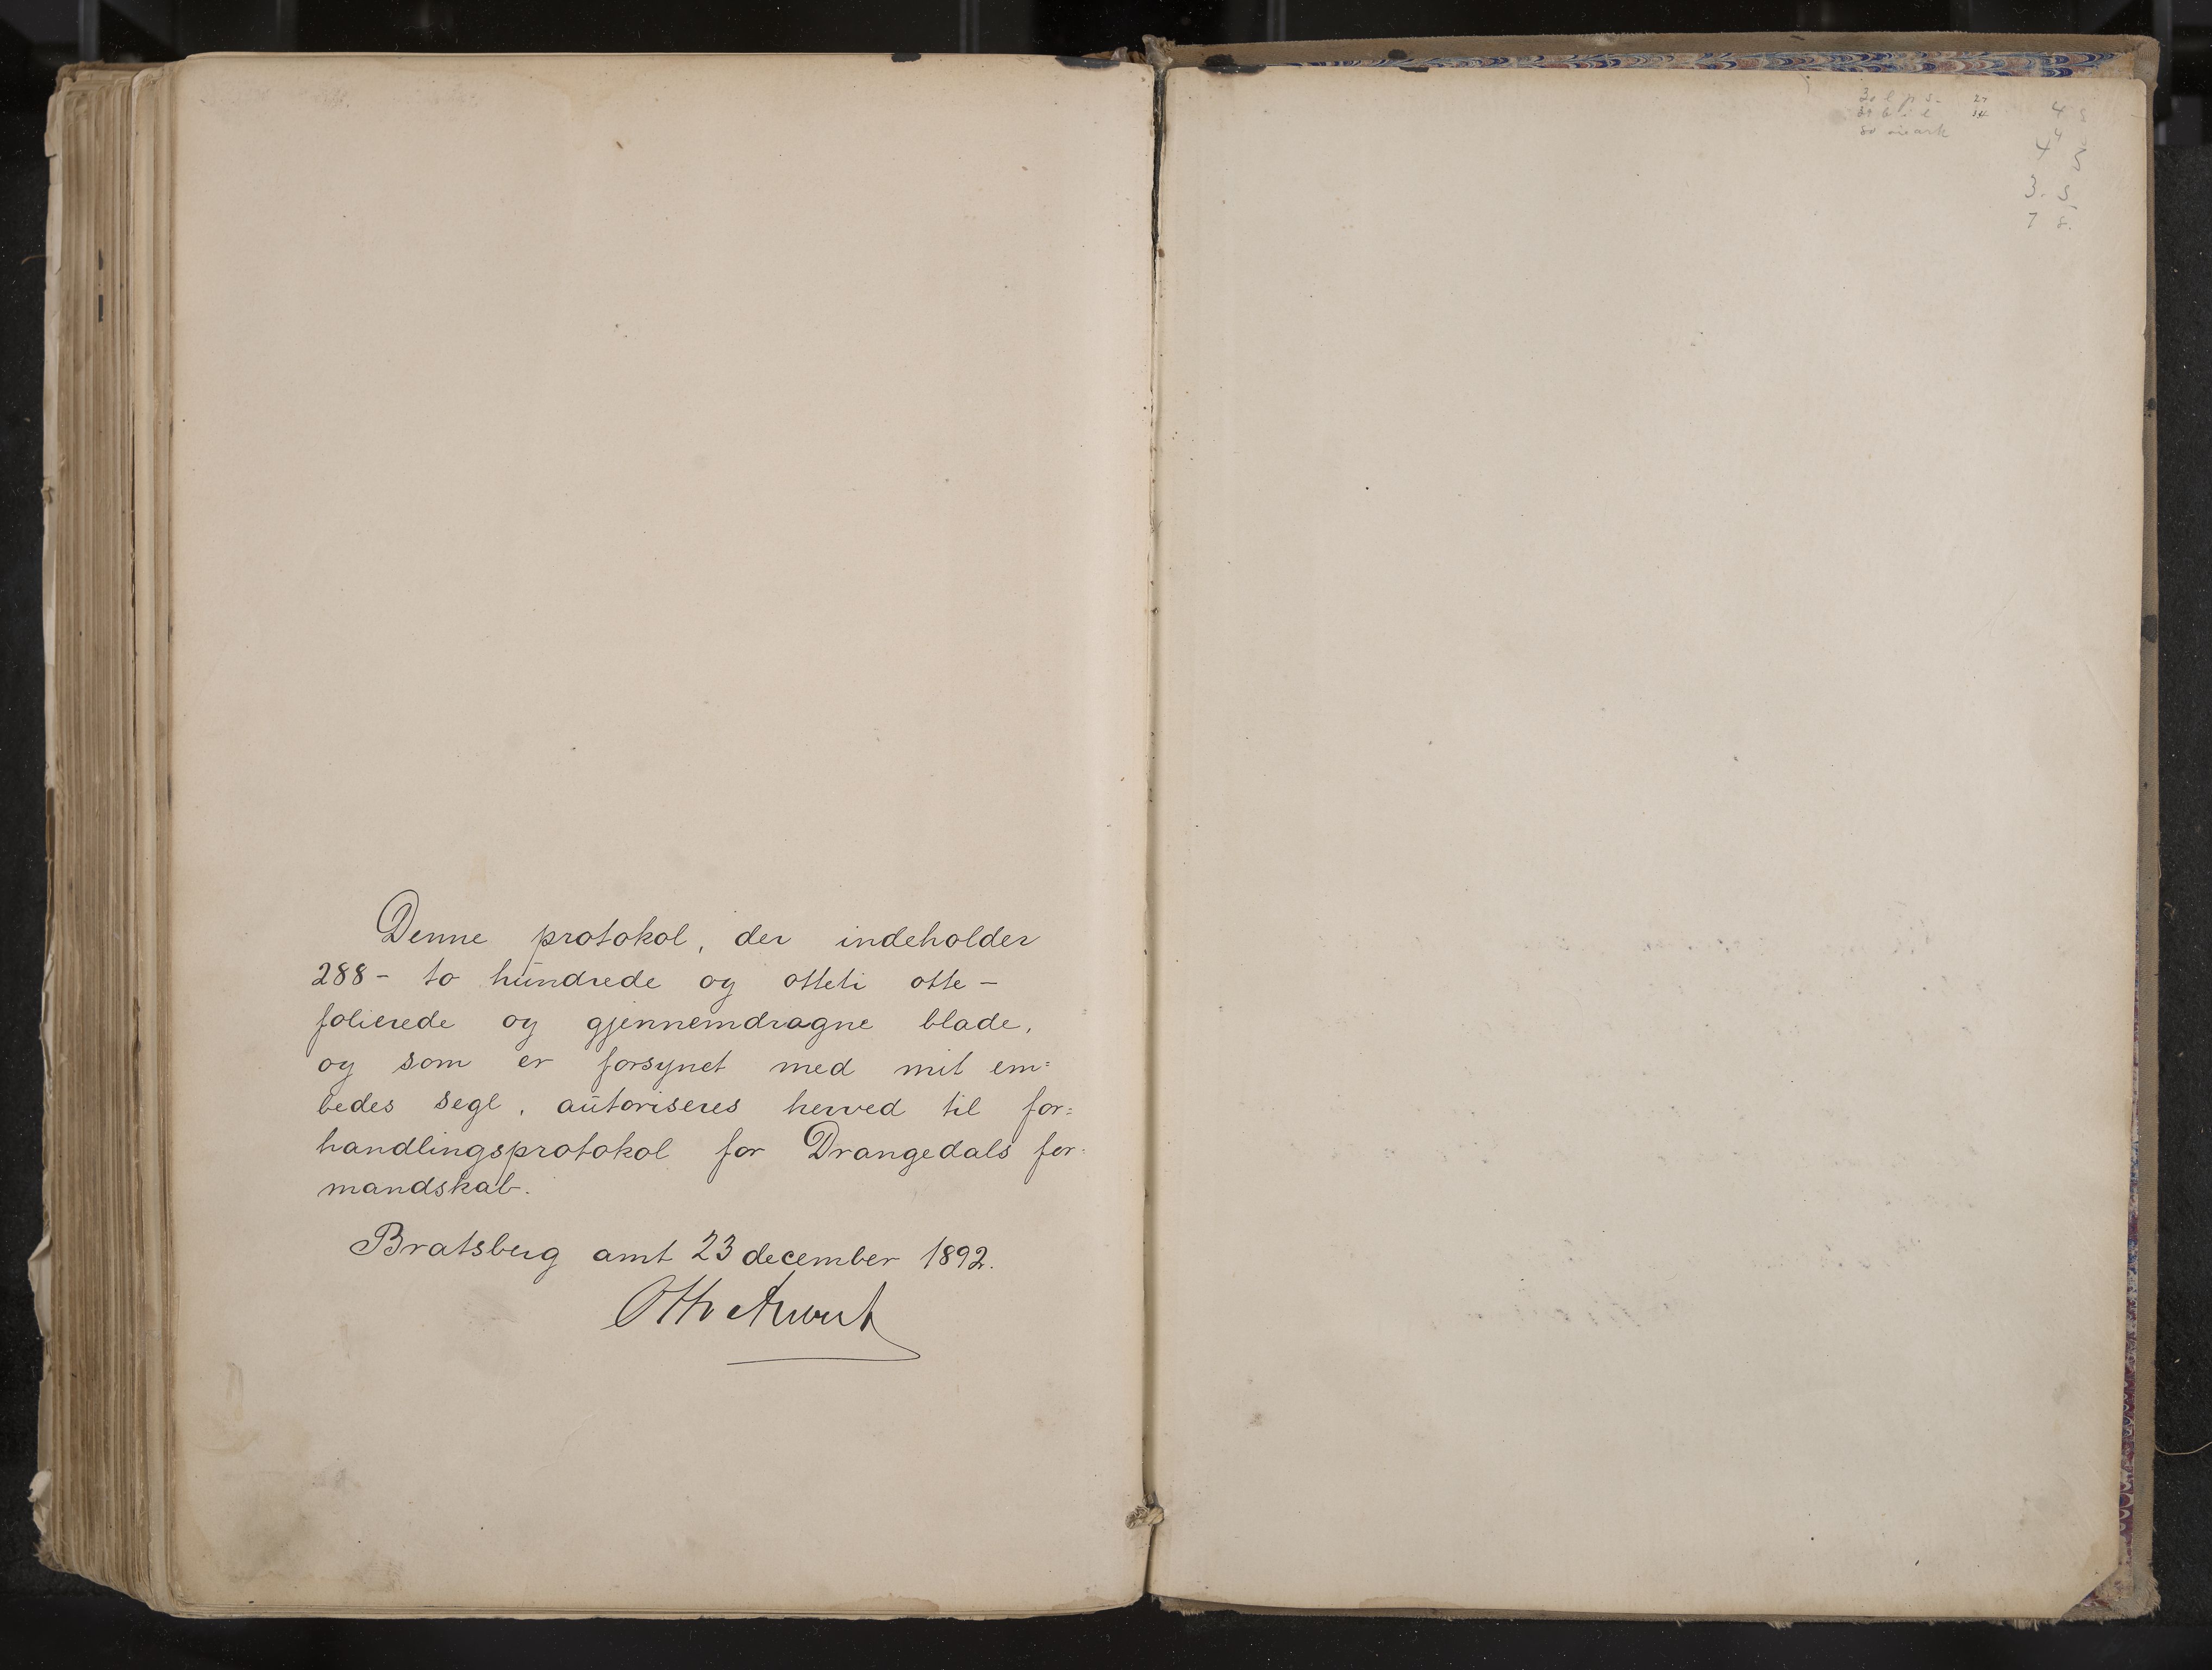 Denne protokol, der indeholder
288 - to hundrede og otteti otte -
folierede og gjennemdragne blade,
og som er forsynet med mit em=
bedes segl, autoriseres herved til for=
handlingsprotokol for Drangedals for=
mandskab.
Bratsberg amt 23 december 1892.
Otto
mark
4 5
3. 5
7 8.